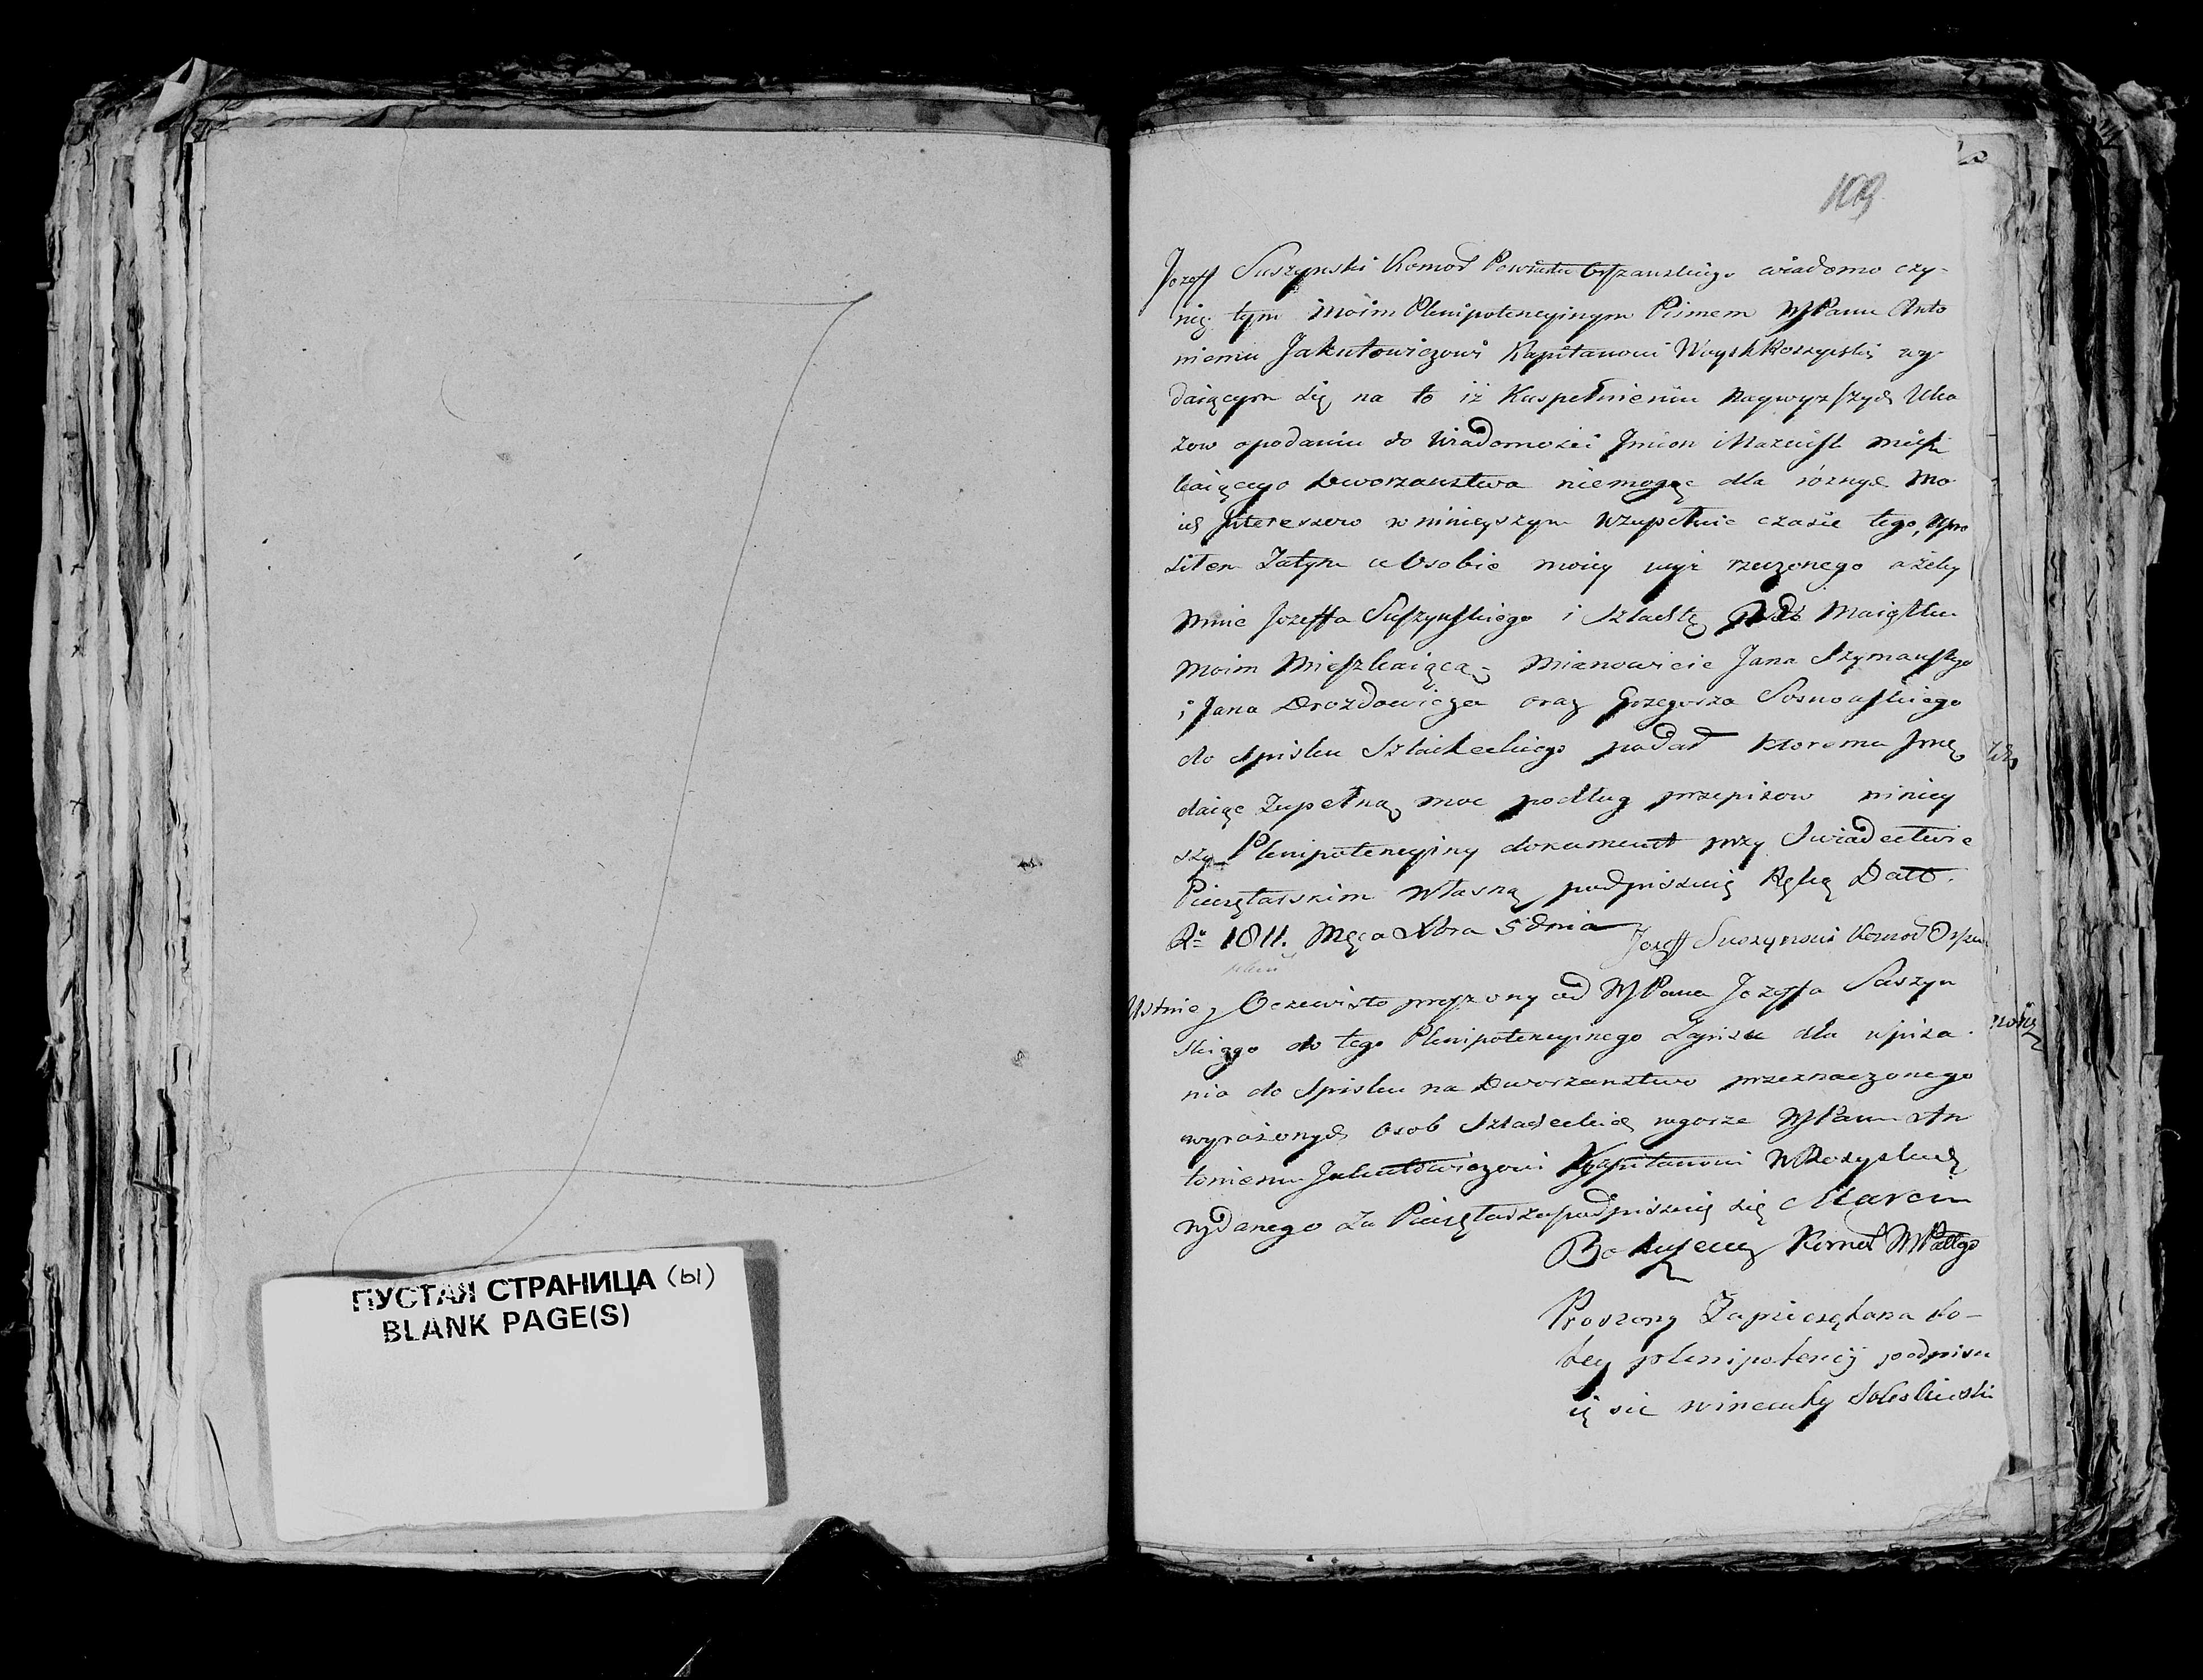 ПУСТАЯ СТРАНИЦА (ы)
BLANK PAGE(S)
109
Jozeff Suszynski Komor Powiatu Orszanskiego wiadomo czy-
nię tym moim Plenipotencyinym Pismem WJPanu Anto
niemu Jakutowiczowi Kapitanowi Woysk Roszyiskich wy-
daiącym się na to iż Kuspełnieniu Naywyższych Uka
zow opodaniu do Wiadomosci Jmion i Nazwisk miesz
kaiącego Dworzanstwa niemogąc dla różnych Mo
ich Jnteressow w ninieyszym Wzupełnic czasie tego, Upro
siłem Zatym w Osobie moiey wyż rzeczonego ażeby
Mnie Jozeffa Suszynskiego i Szlachtę Maiątku
Moim Mieszkaiącą, Mianowicie Jana Szymanskgo
i Jana Drozdowicza oraz Grzegorza Sosnowskiego
do Spisku Szlacheckiego podał ktoremu
daiąc Zupełną moc podług przepisow niniey
szy Plenipotencyiny dokument przy Swiadectwie
Pieczętarskim Własną podpisuię Ręką Datt.
Rº 1811. Męca Xbra 5 dnia Jozeff Suszynski Komor Orszan
Ustnie y Oczewisto proszony od WJPana Jozeffa Suszyn
skiego do tego Plenipotencyinego Zapisu dla wpisa-
nia do Spisku na Dworzanstwo przeznaczonego
wyrażonych Osob Szlacheckich wgorze WJPanu An
toniemu Jakutowiczowi Kapitanowi W Rozyskich
wydanego za Pieczętarza podpisuię się Marcin
Proszony Zapieczętara do-
tey plenipotencij podpisu
ię się wincenty